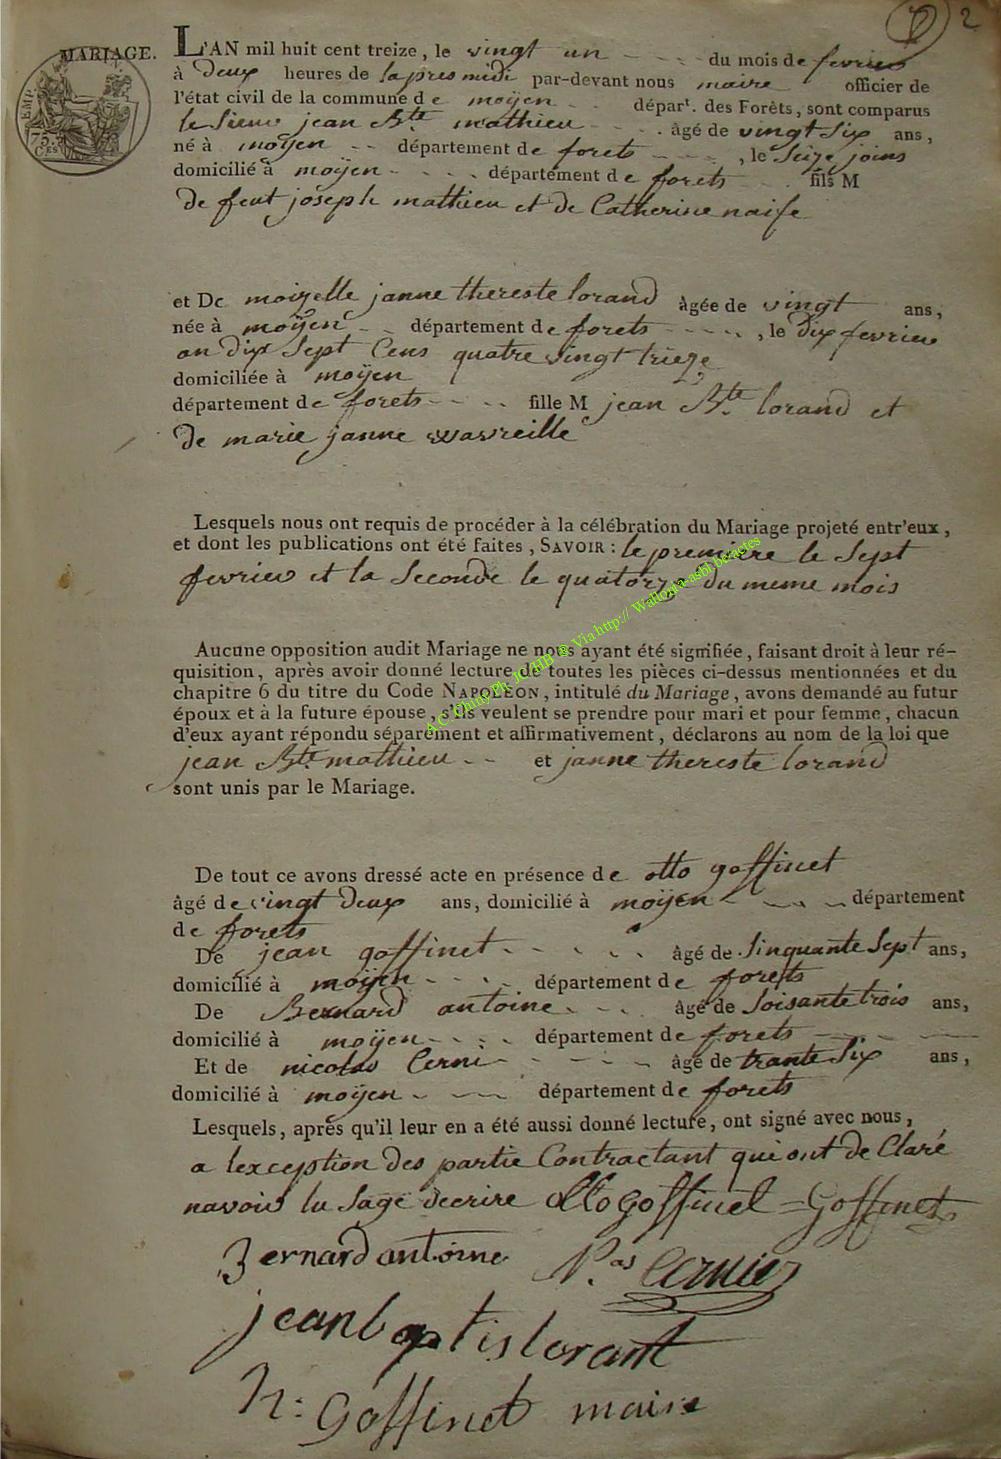 2
MARIAGE. L'AN mil huit cent treize, le vingt un du mois de fevrier
à deux heures de lapres midi par-devant nous maire officier de
l'état civil de la commune de moÿen dépar<sup>t</sup>. des Forêts, sont comparus
le Sieur jean B<sup>te</sup> mathieu âgé de vingt Six ans,
né à moÿen département de forets, le Seize joins
domicilié à moÿen département de forets fils M
de feut joseph mathieu et de Catherine naife
et De moizelle janne thereste lorand âgée de vingt ans,
née à moÿen département de forets, le dix fevrier
an dix Sept Cens quatre vingt trieze
domiciliée à moÿen
département de forets fille M jean B<sup>te</sup> lorand et
de marie janne wavreille
Lesquels nous ont requis de procéder à la célébration du Mariage projeté entr'eux,
et dont les publications ont été faites, SAVOIR : le premiere le Sept
fevrier et la Seconde le quatorze du meme mois
Aucune opposition audit Mariage ne nous ayant été signifiée, faisant droit à leur ré-
quisition, après avoir donné lecture de toutes les pièces ci-dessus mentionnées et du
chapitre 6 du titre du Code NAPOLÉON, intitulé du Mariage, avons demandé au futur
époux et à la future épouse, s'ils veulent se prendre pour mari et pour femme, chacun
d'eux ayant répondu séparément et affirmativement, déclarons au nom de la loi que
jean B<sup>te</sup> mathieu et janne thereste lorand
sont unis par le Mariage.
De tout ce avons dressé acte en présence de otto goffinet
âgé de vingt deux ans, domicilié à moÿen département
de forets
De jean goffinet âgé de Sinquante Sept ans,
domicilié à moÿen département de forets
De Bernard antoine âgé de Soisante trois ans,
domicilié à moÿen département de forets
Et de nicolas Cerni âgé de trante Six ans,
domicilié à moÿen département de forets
Lesquels, après qu'il leur en a été aussi donné lecture, ont signé avec nous,
a lexception des partie Contractant qui ont de Claré
navoir lu Sage decrire otto goffinet = Goffinet
Bernard antoine N.<sup>as</sup> Cernier
jean baptis lorant
h: Goffinet maire